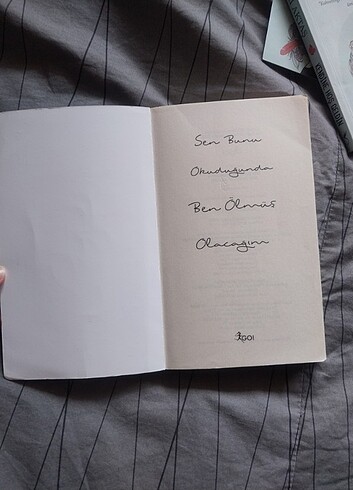 Sen Bunu
Okuduğunda
Ben Ölmüş
Olacağım
GO!